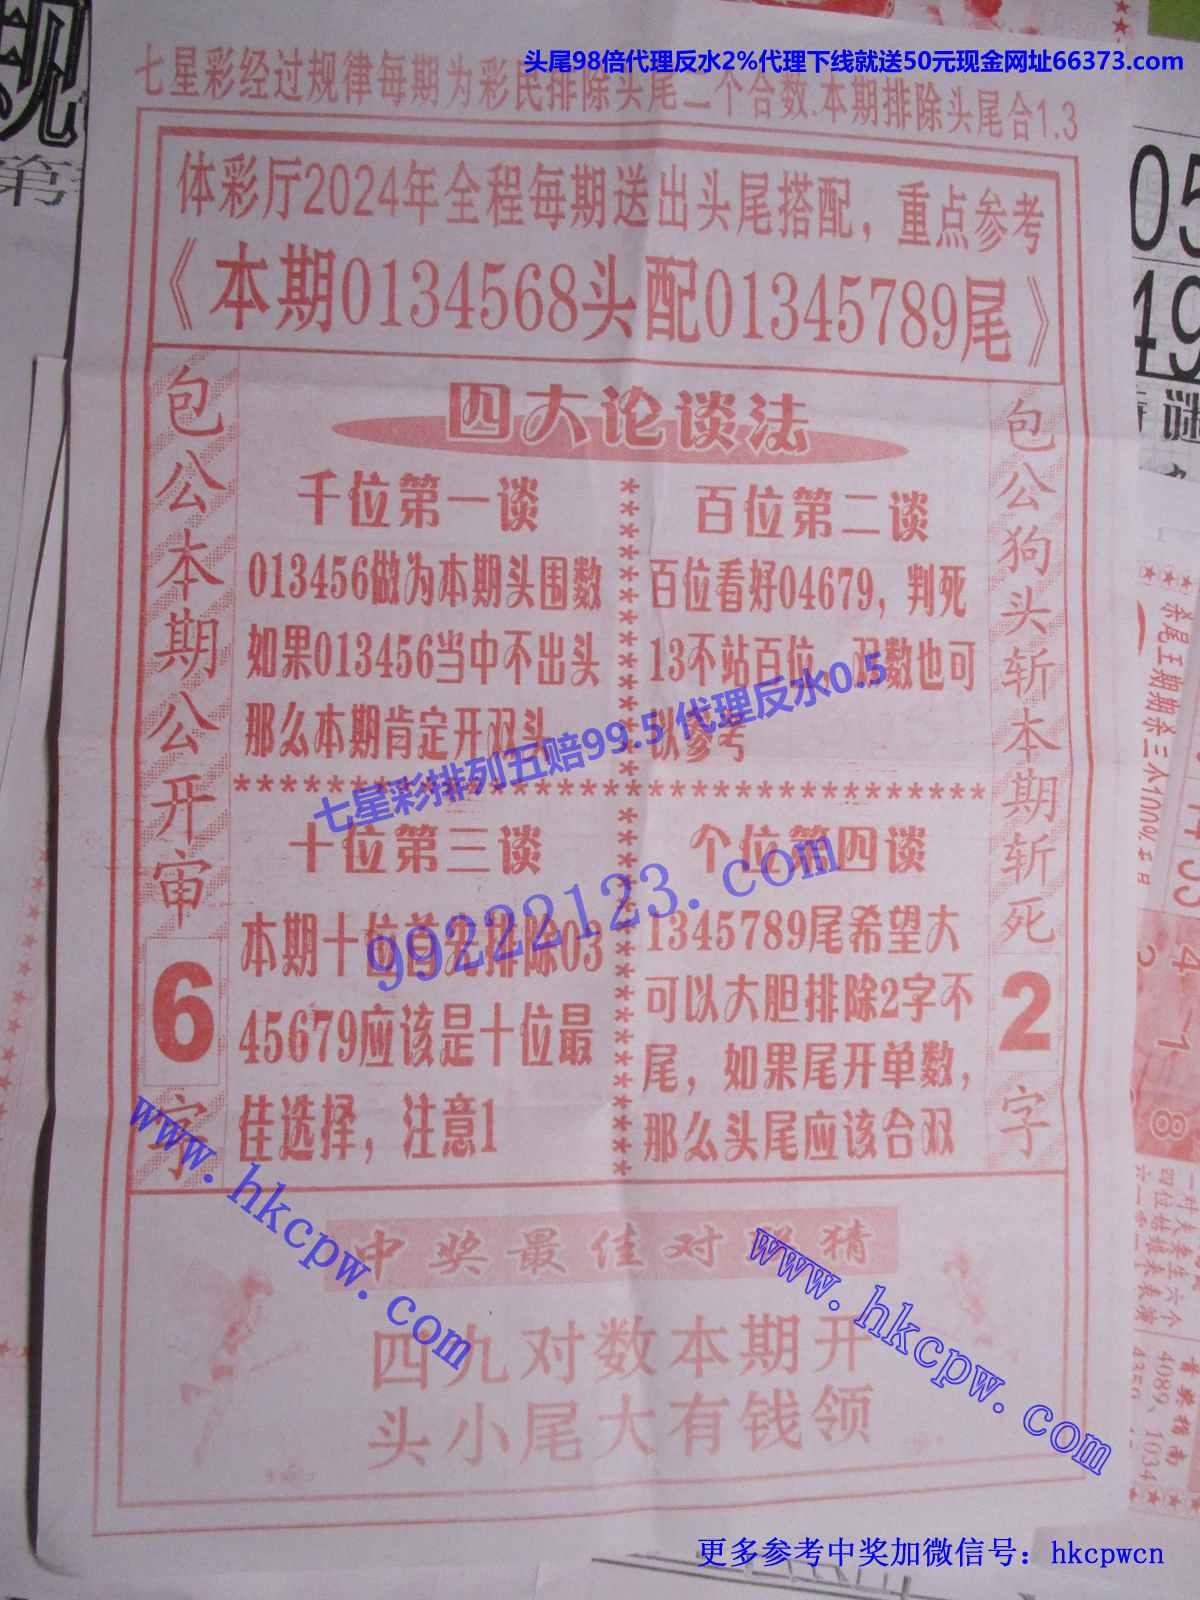 头尾98倍代理反水2%代理下线就送50元现金网址66373.com
七星彩经过规律每期为彩民排除头尾二个合数.本期排除头尾合1.3
体彩厅2024年全程每期送出头尾搭配，重点参考
《本期0134568头配01345789尾》
包公本期公开审
6
字
四大论谈法
千位第一谈
013456做为本期头围数
如果013456当中不出头
那么本期肯定开双头
百位第二谈
百位看好04679，判死
13不站百位，双数也可
以参考
七星彩排列五赔99.5 代理反水0.5
十位第三谈
本期十位首先排除03
45679应该是十位最
佳选择，注意1
99222123.com
个位第四谈
1345789尾希望大
可以大胆排除2字不
尾，如果尾开单数，
那么头尾应该合双
包公狗头斩本期斩死
2
字
中奖最佳对
猜
四九对数本期开
头小尾大有钱领
www.hkcpw.com
www.hkcpw.com
更多参考中奖加微信号：hkcpwcn
05
49
谜
杀尾王期期杀三个100%
4
1
8
四位姑娘来表演
4089、1034